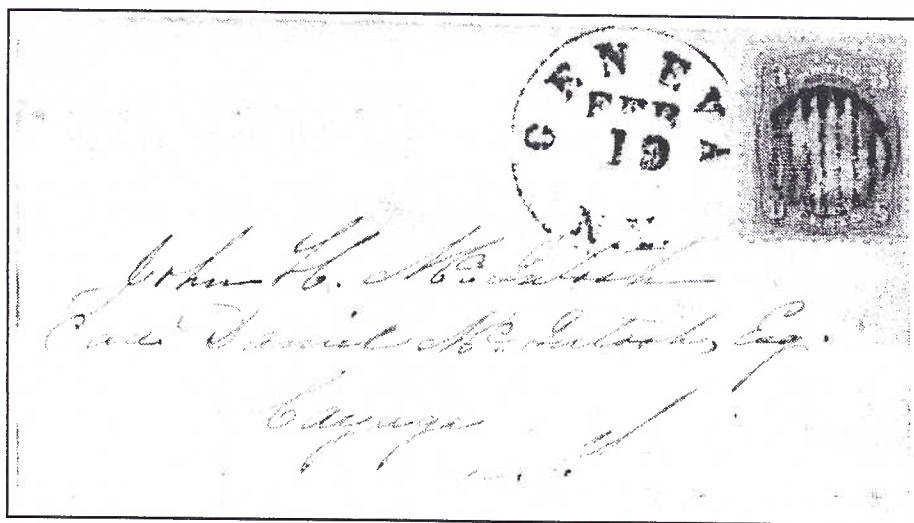 GENEVA
FEB
19
N.Y.
3 3
U S
John H. McIntosh
Care Daniel McIntosh, Esq.
Cayuga